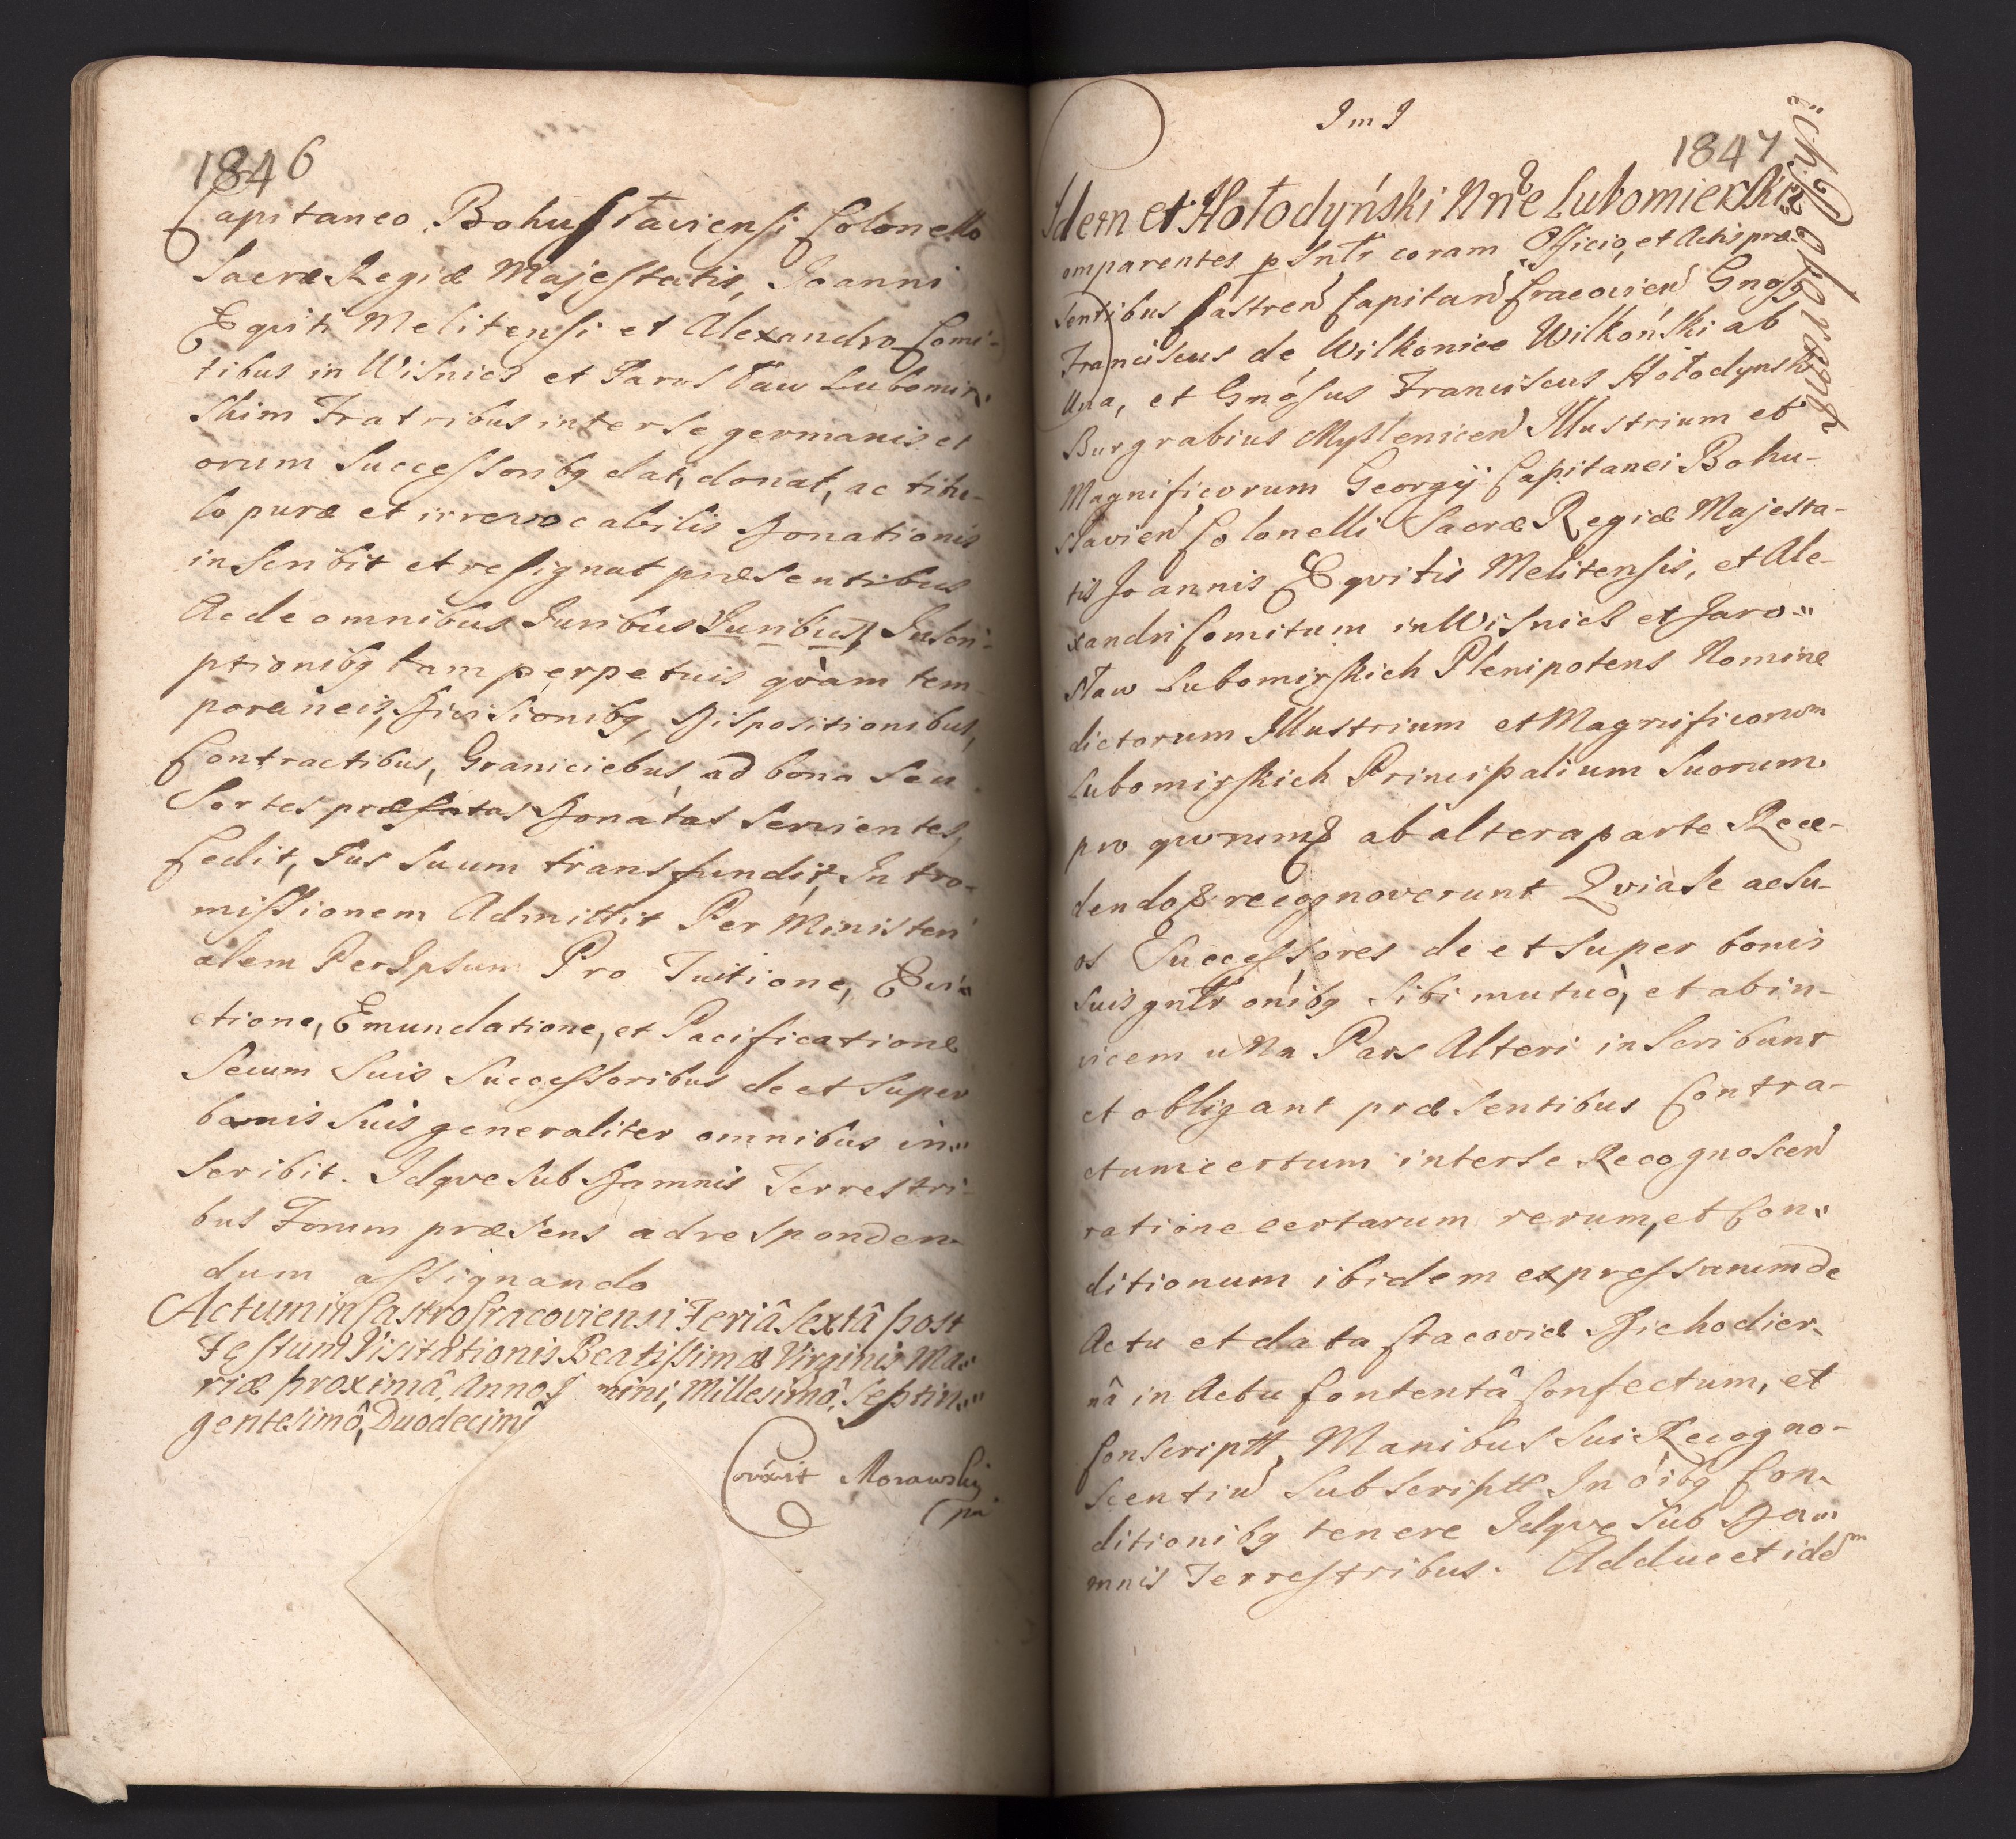 1846
Capitaneo Bohusłaviensi Colonello
Sacræ Regiæ Majestatis, Joanni
Eqviti Melitensi et Alexandro Comi-
tibus in Wisnicz et Jarosław Lubomir-
skim Fratribus inter se germanis et
orum Successoribq dat, donat, ac titu-
lo puræ et irrevocabilis Donationis
inscribit et resignat præsentibus
Ac de omnibus Juribus Juribus, Inscri-
ptionibq tam perpetuis qvàm tem-
poraneis, Divisionibq, Dispositionibus,
Contractibus, Graniciebus ad bona seu
Sortes præfatas Donatas servientes,
Cedit, Jus suum transfundit, Intro-
missionem Admittit Per Ministeri
alem Per Ipsum Pro Tuitione, Evi-
ctione, Emundatione, et Pacificatione
Secum Suis Successoribus de et super
bonis suis generaliter omnibus in-
scribit. Idqve sub Damnis Terrestri-
bus Forum præsens ad responden-
dum assignando
Actum in Castro Cracoviensi Feriâ Sextâ post
Festum Visitationis Beatissimæ Virginis Ma-
riæ proximâ, Anno mini, Millesimô, Septin-
gentesimô, Duodecimô
Corréxit Morawsky
mp
J m J
1847
Idem et Hołodyński Nrie Lubomierski-
ich Se obligant
omparentes psntr coram Officio, et Actis præ-
sentibus Castren Capitan Cracovien Gnosq
Franciscus de Wilkonice Wilkoński ab
una, et Gnósus Franciscus Hołodynski
Burgrabius Myslenicen Illustrium et
Magnificorum Georgij Capitanei Bohu-
slavien Colonelli Sacræ Regiæ Majesta-
tis Joannis Eqvitis Melitensis, et Ale-
xandri Comitum in Wisnicz et Jaro-
sław Lubomirskich Plenipotens Nomine
dictorum Illustrium et Magnificorum
Lubomirskich Principalium Suorum
pro qvorum ab altera parte Rece-
dendo & recognoverunt Qvia Se ac Su-
os Successores de et super bonis
suis gnlr oníbq sibi mutuò, et abin-
vicem una Pars Alteri inscribunt
et obligant præsentibus Contra-
ctum certum inter se Recognoscen
ratione certarum rerum, et Con-
ditionum ibidem expressarum de
Actu et data Cracoviæ Die hodier-
nâ in Actu Contentâ confectum, et
Conscriptt, Manibus Sui Recogno-
scentiu Subscriptt In óibq Con-
ditionibq tenere Idqve sub Dam
mnis Terrestribus. Adduc et idem